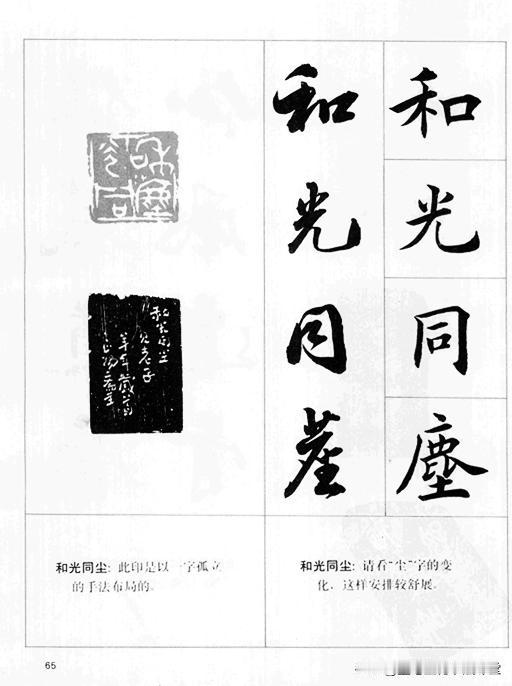 和光同塵
和光同塵
和光同塵
和光同尘
见老子
和光同尘：此印是以一字孤立
的手法布局的。
和光同尘：请看“尘”字的变
化，这样安排较舒展。
65